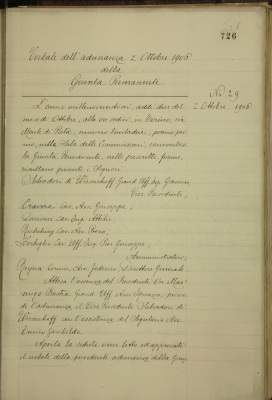 726
Verbale dell'adunanza 2 Ottobre 1906
della
Giunta Permanente
N. 29
2 Ottobre 1906
L'anno millenovecentosei, addì due del
mese di Ottobre, alle ore sedici, in Torino, via
Monte di Pietà, numero trentadue, primo pia-
no, nella Sala delle Commissioni, convocatasi
la Giunta Permanente, nelle prescritte forme,
risultano presenti i Signori
Salvadori di Wiesenhoff Grand Uff. Ing. Giovanni
Vice Presidente,
Cravera Cav. Avv. Giuseppe,
Cav. Ing. Attilio,
Cav. Avv.
Cav. Uff. Ing. Pier Giuseppe,
Amministratori,
Regna Comm. Avv. Federico, Direttore Generale.
Attesa l'assenza del Presidente On. Mar-
Grand Uff. Avv. prende
l'adunanza il Vice Presidente Salvadori di
Wiesenhoff con l'assistenza del Segretario Avv.
Garibaldo.
Aperta la seduta viene letto ed approvato
il verbale della precedente adunanza della Giun-